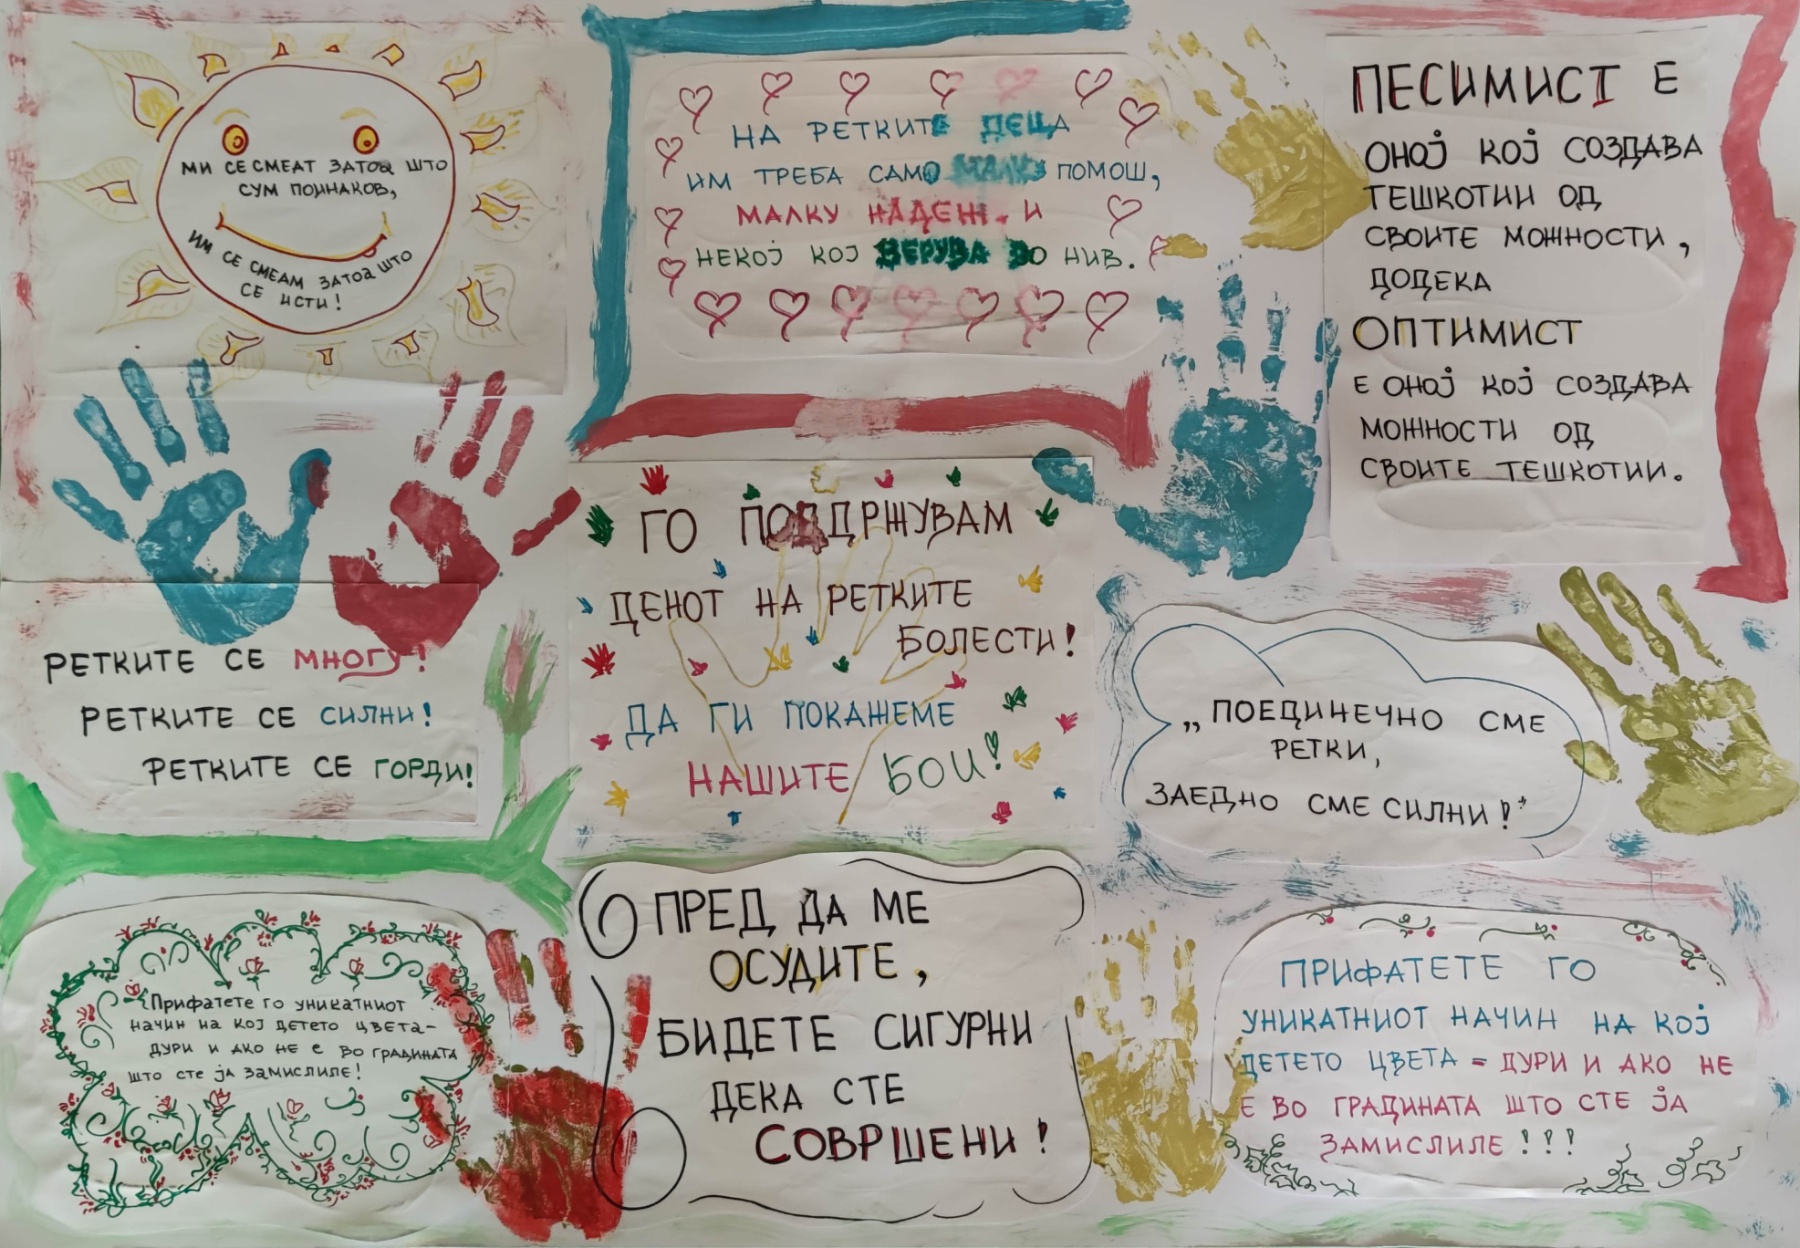 МИ СЕ СМЕАТ ЗАТОА ШТО
СУМ ПОИНАКОВ,
ИМ СЕ СМЕАМ ЗАТОА ШТО
СЕ ИСТИ!
НА РЕТКИТЕ ДЕЦА
ИМ ТРЕБА САМО МАЛКУ ПОМОШ,
МАЛКУ НАДЕЖ. И
НЕКОЈ КОЈ ВЕРУВА ВО НИВ.
ПЕСИМИСТ Е
ОНОЈ КОЈ СОЗДАВА
ТЕШКОТИИ ОД
СВОИТЕ МОЖНОСТИ,
ДОДЕКА
ОПТИМИСТ
Е ОНОЈ КОЈ СОЗДАВА
МОЖНОСТИ ОД
СВОИТЕ ТЕШКОТИИ.
РЕТКИТЕ СЕ МНОГУ!
РЕТКИТЕ СЕ СИЛНИ!
РЕТКИТЕ СЕ ГОРДИ!
ГО ПОДДРЖУВАМ
ДЕНОТ НА РЕТКИТЕ
БОЛЕСТИ!
ДА ГИ ПОКАЖЕМЕ
НАШИТЕ БОИ!
„ПОЕДИНЕЧНО СМЕ
РЕТКИ,
ЗАЕДНО СМЕ СИЛНИ!"
Прифатете го уникатниот
начин на кој детето цвета-
дури и ако не е во градината
што сте ја замислиле!
ПРЕД ДА МЕ
ОСУДИТЕ,
БИДЕТЕ СИГУРНИ
ДЕКА СТЕ
СОВРШЕНИ!
ПРИФАТЕТЕ ГО
УНИКАТНИОТ НАЧИН НА КОЈ
ДЕТЕТО ЦВЕТА = ДУРИ И АКО НЕ
Е ВО ГРАДИНАТА ШТО СТЕ ЈА
ЗАМИСЛИЛЕ!!!